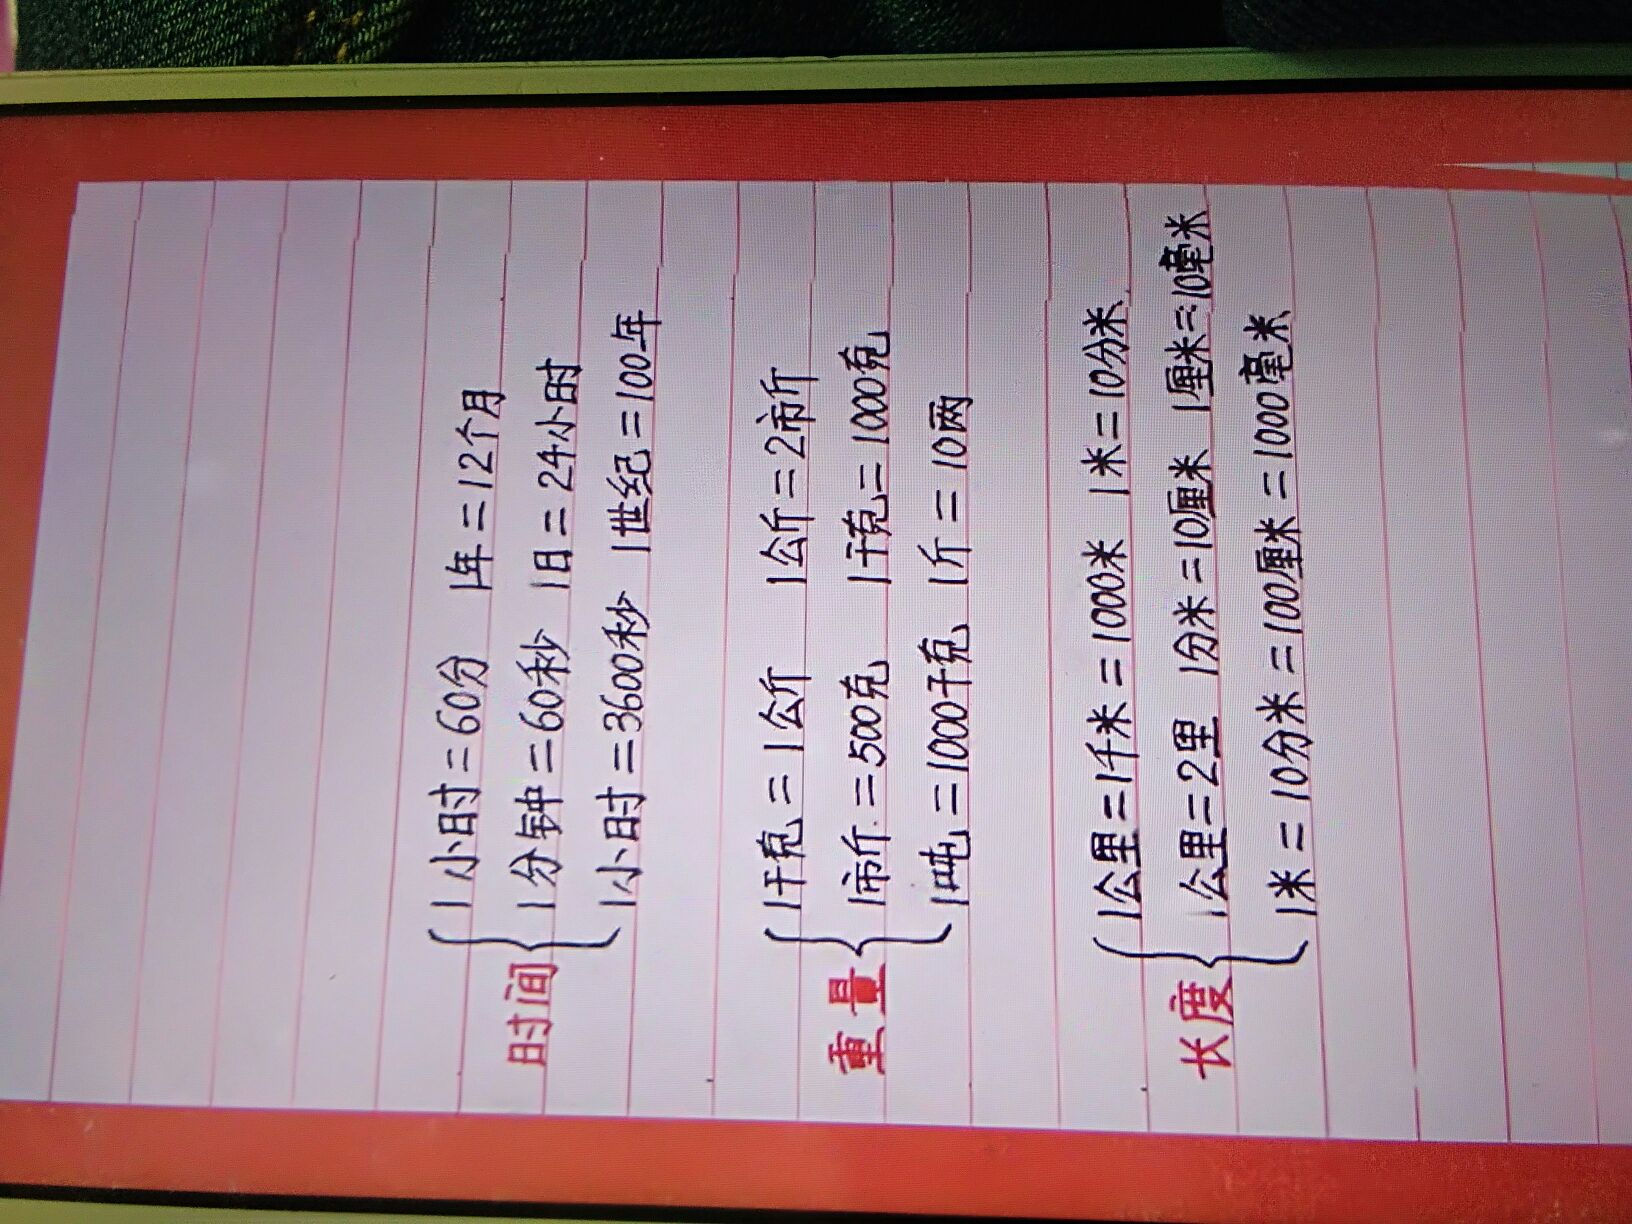 1小时=60分 1年=12个月
时间 1分钟=60秒 1日=24小时
1小时=3600秒 1世纪=100年
1千克=1公斤 1公斤=2市斤
重量 1市斤=500克 1千克=1000克
1吨=1000千克 1斤=10两
1公里=1千米=1000米 1米=10分米
长度 1公里=2里 1分米=10厘米 1厘米=10毫米
1米=10分米=100厘米=1000毫米